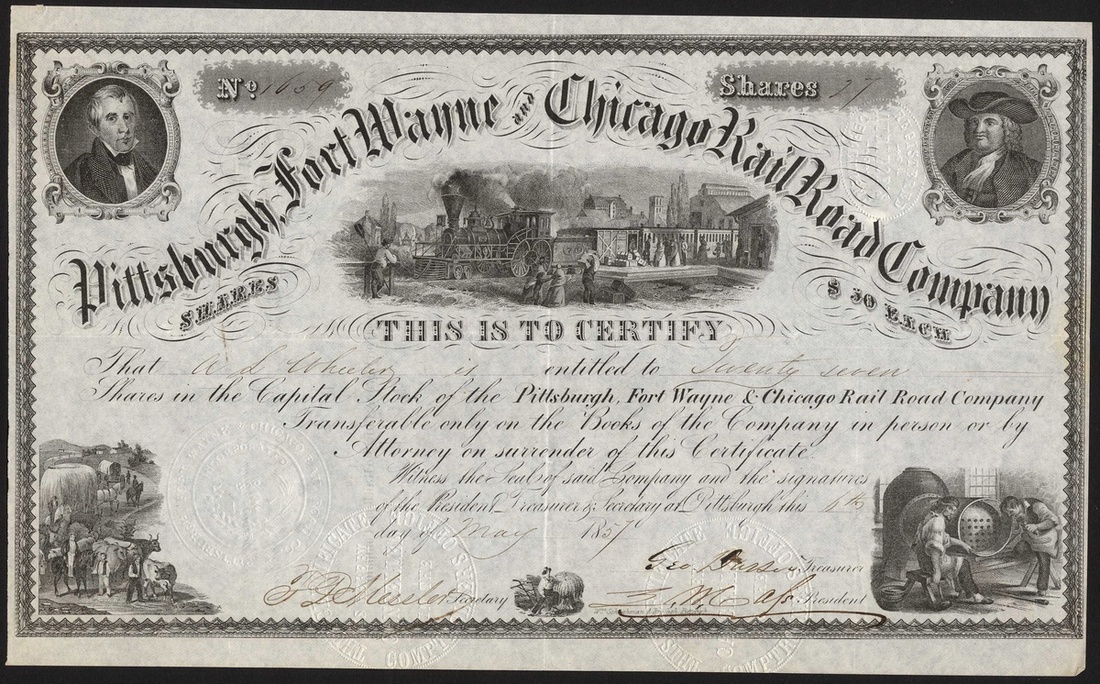 No. 1659
Shares 27
Pittsburgh, Fort Wayne and Chicago Rail Road Company
SHARES
$50 EACH
THIS IS TO CERTIFY
That W L Wheeler is entitled to Twenty seven
Shares in the Capital Stock of the Pittsburgh, Fort Wayne & Chicago Rail Road Company
Transferable only on the Books of the Company in person or by
Attorney on surrender of this Certificate
Witness the Seal of said Company and the signatures
of the President Treasurer & Secretary at Pittsburgh this
day of May 1857
Treasurer
Secretary
President